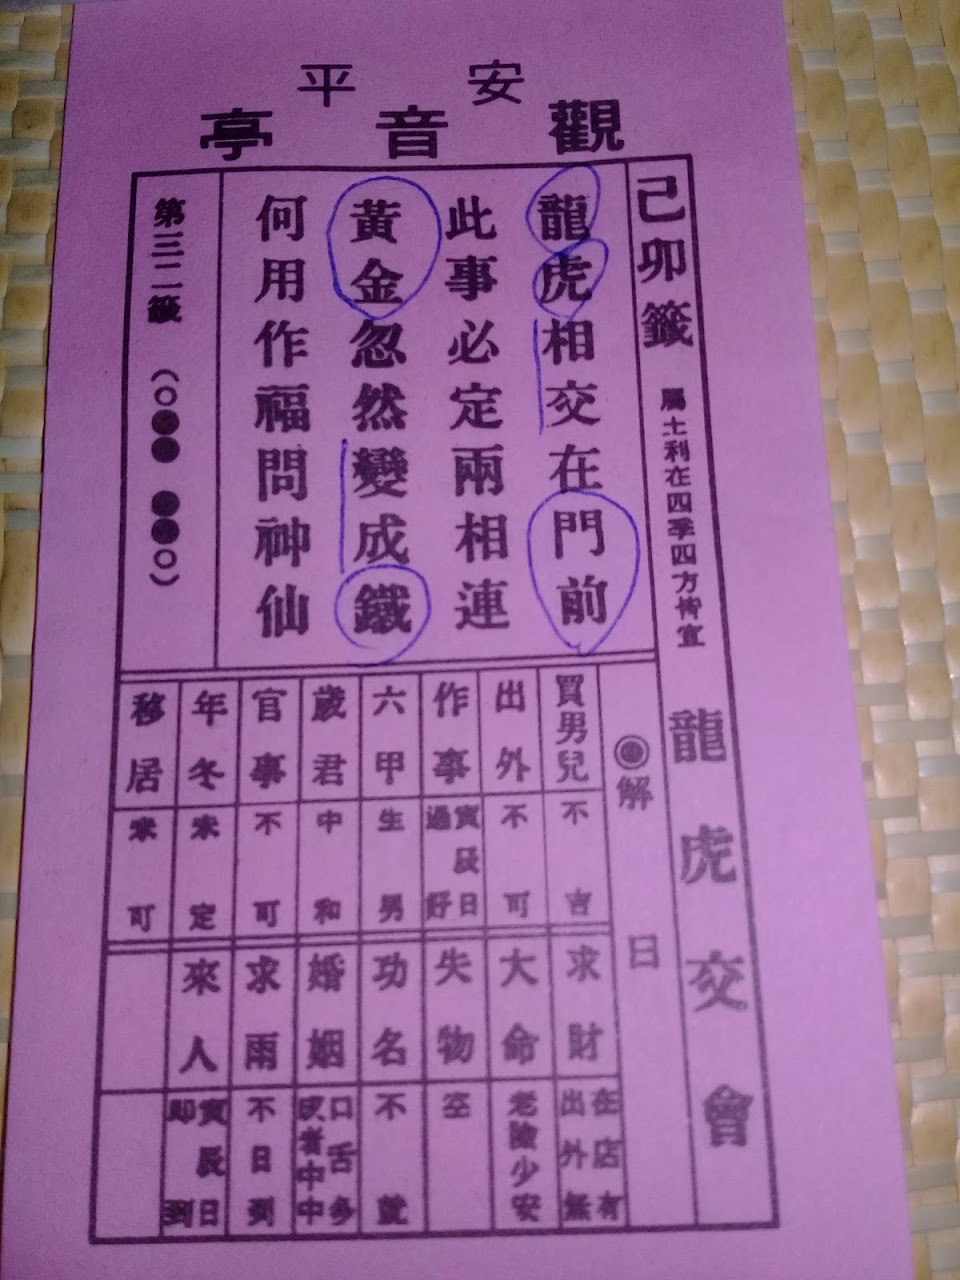 安平
觀音亭
己卯籤
屬土利在四季四方皆宜
龍虎交會
龍虎相交在門前
此事必定兩相連
黃金忽然變成鐵
何用作福問神仙
第三二籤
(○●● ●●○)
◉解曰
買男兒 不吉
出外 不可
作事 寅辰日過好
六甲 生男
歲君 中和
官事 不可
年冬 未定
移居 未可
求財 在店有出外無
大命 老險少安
失物 空
功名 不就
婚姻 口舌多 中中
求雨 不日到
來人 寅辰日即到